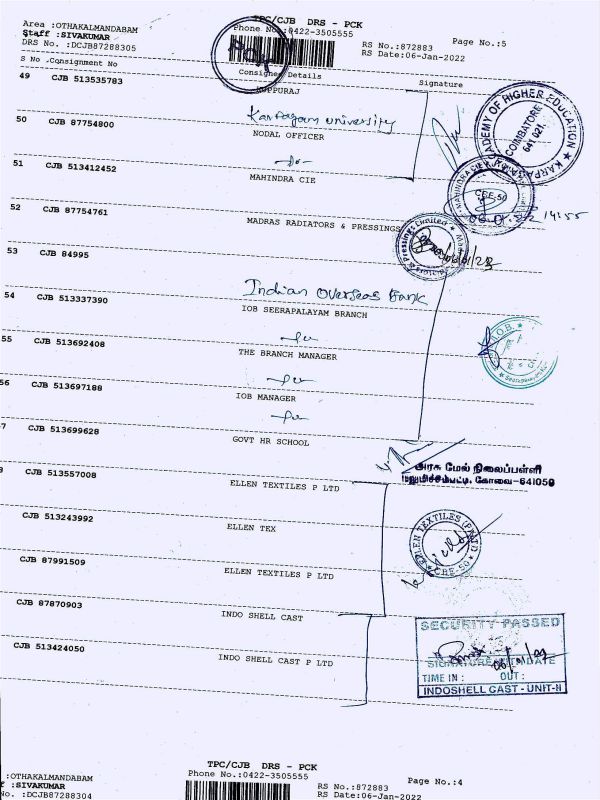 TPC/CJB DRS - PCK
Area :OTHAKALMANDABAM
Phone No.:0422-3505555
Staff :SIVAKUMAR
RS No.:872883 Page No.:5
DRS No. :DCJB87288305
RS Date:06-Jan-2022
S No .Consignment No Consignee Details Signature
49 CJB 513535783 KUPPURAJ
Karpagam University
50 CJB 87754800 NODAL OFFICER
51 CJB 513412452 MAHINDRA CIE
52 CJB 87754761 MADRAS RADIATORS & PRESSINGS
53 CJB 84995
Indian Overseas Bank
54 CJB 513337390 IOB SEERAPALAYAM BRANCH
55 CJB 513692408 THE BRANCH MANAGER
56 CJB 513697188 IOB MANAGER
7 CJB 513699628 GOVT HR SCHOOL
CJB 513557008 ELLEN TEXTILES P LTD
CJB 513243992 ELLEN TEX
CJB 87991509 ELLEN TEXTILES P LTD
CJB 87870903 INDO SHELL CAST
CJB 513424050 INDO SHELL CAST P LTD
ACADEMY OF HIGHER EDUCATION
COIMBATORE
641 021
MAHINDRA CIE
CBE-50
14:55
அரசு மேல் நிலைப்பள்ளி
மலுமிச்சம்பட்டி, கோவை-641050
ELLEN TEXTILES (P) LTD
CBE-50
SECURITY PASSED
SIGNATURE WITH DATE
TIME IN : OUT :
INDOSHELL CAST - UNIT-II
TPC/CJB DRS - PCK
:OTHAKALMANDABAM Phone No.:0422-3505555
f :SIVAKUMAR RS No.:872883 Page No.:4
No. :DCJB87288304 RS Date:06-Jan-2022